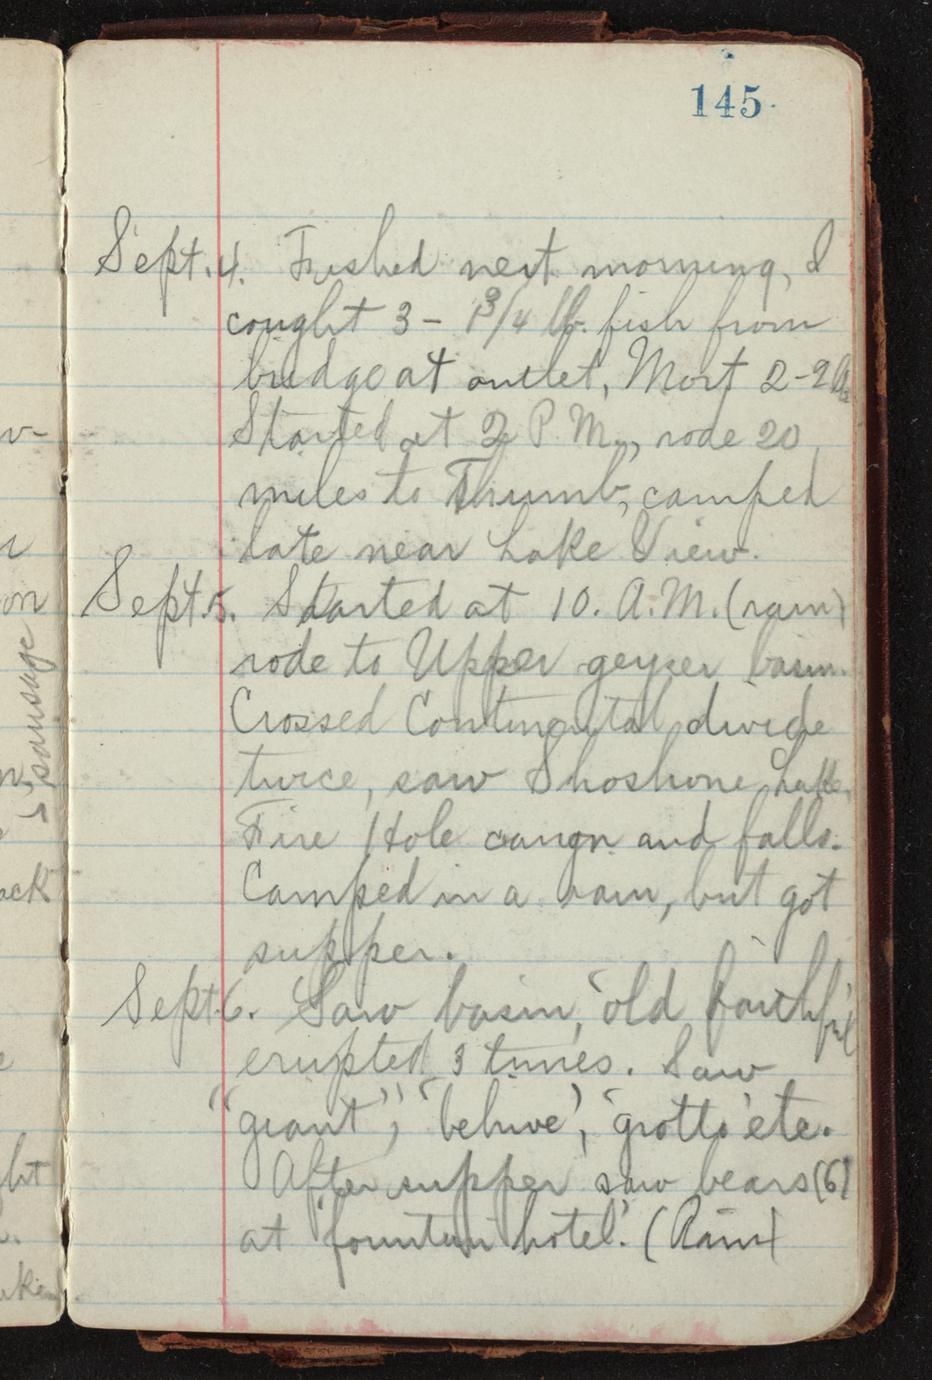 145
Sept. 4. Fished next morning, I
cought 3 - 1 3/4 lb. fish from
bridge at outlet, Mort 2-2 lbs
Started at 2 P.M., rode 20
miles to Thumb, camped
late near Lake View.
Sept. 5. Started at 10. A.M. (rain)
rode to Upper geyser basin.
Crossed Continental divide
twice, saw Shoshone Lake,
Fire Hole canon and falls.
Camped in a rain, but got
supper.
Sept 6. Saw basin, 'old faithful'
erupted 3 times. Saw
"giant", 'behive', 'grotto' etc.
After supper saw bears (6)
at 'fountain hotel'. (Rain)
on
sausage
ack
ght